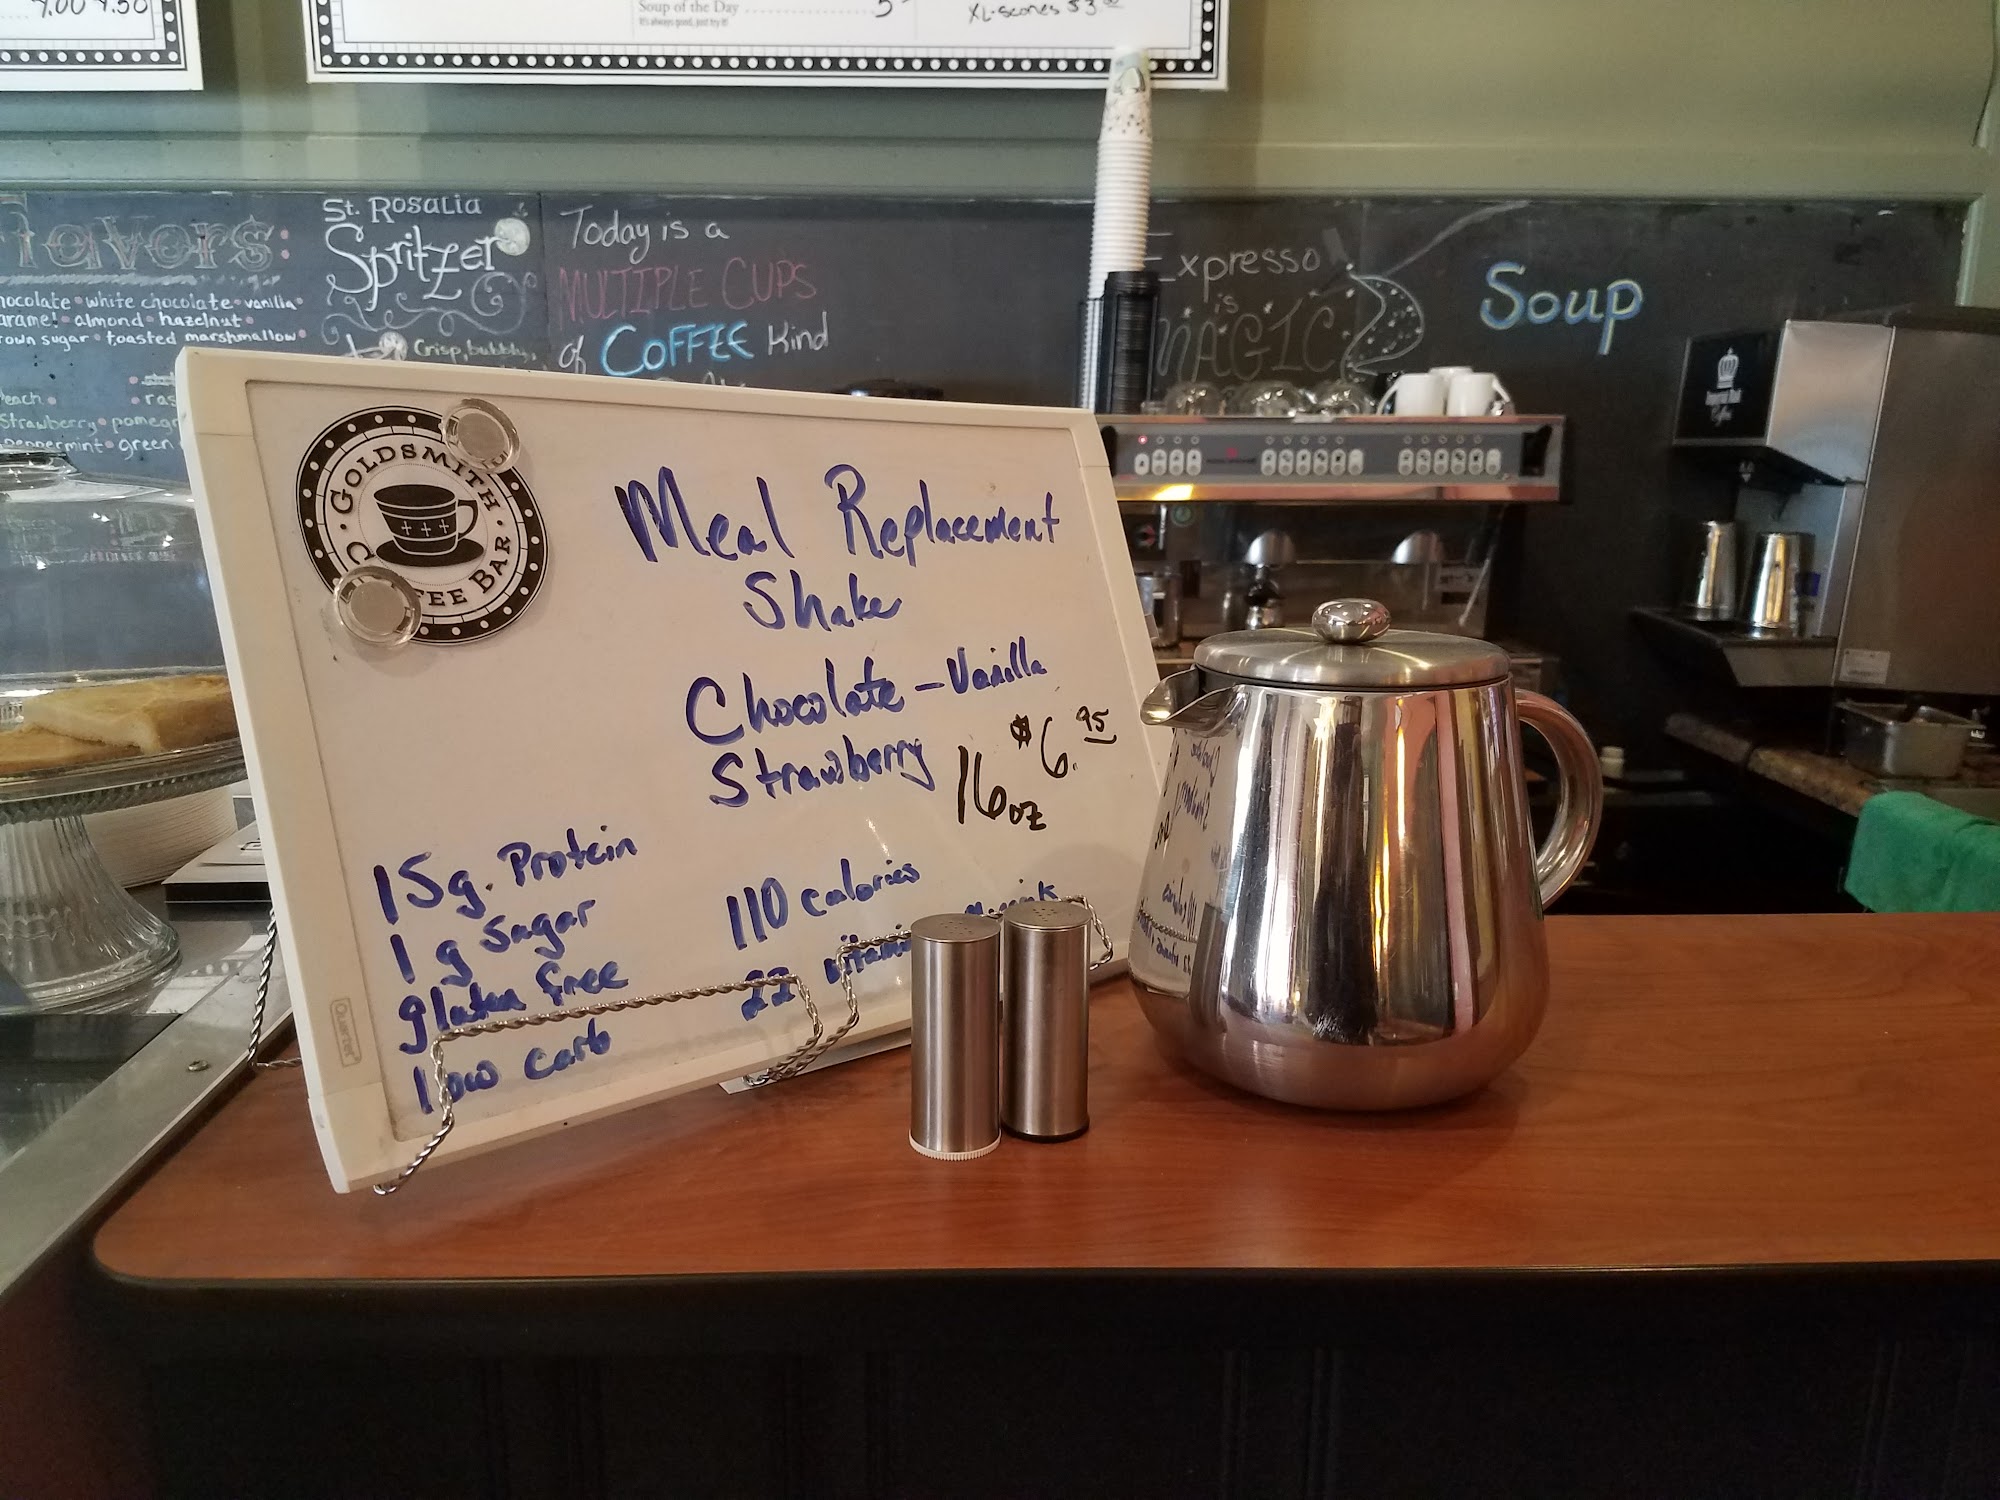 4.00 4.50
Soup of the Day
It's always good, just try it!
XL-scones $3
Flavors:
white chocolate • vanilla
almond • hazelnut •
toasted marshmallow
Strawberry •
Peppermint • green
St. Rosalia
Spritzer
Crisp, bubbly,
Today is a
MULTIPLE CUPS
of COFFEE Kind
Expresso
is
MAGIC
Soup
GOLDSMITH
BAR
Meal Replacement
Shake
Chocolate - Vanilla
Strawberry
$6.95
16oz
15g. Protein
1g Sugar
gluten free
low carb
110 calories
22
Quartet